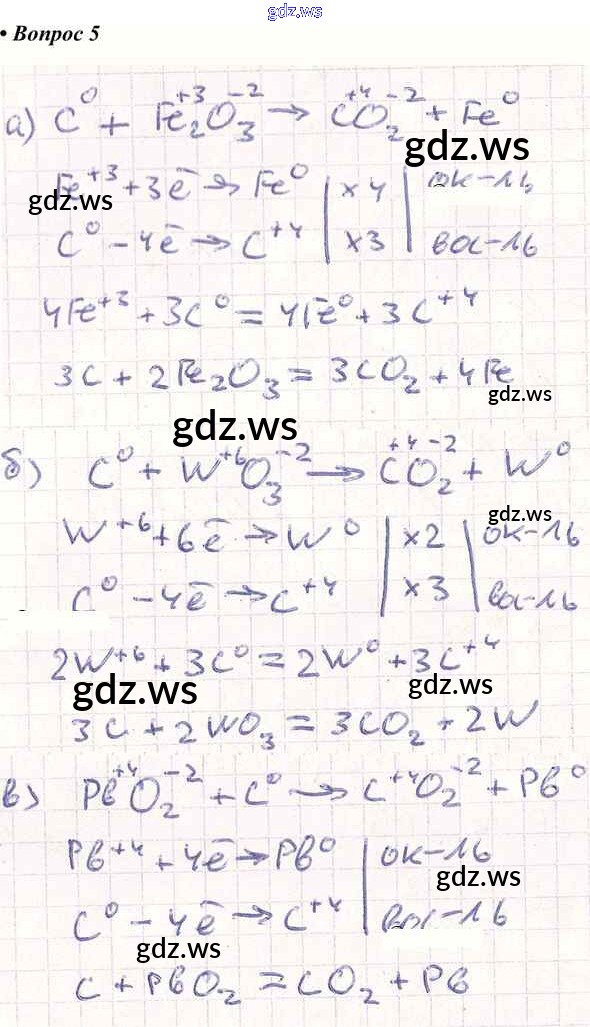 gdz.ws
• Вопрос 5
а) C⁰ + Fe₂⁺³O₃⁻² → C⁺⁴O₂⁻² + Fe⁰
gdz.ws
Fe⁺³ + 3ē → Fe⁰ | ×4 | ок-ль
gdz.ws
C⁰ - 4ē → C⁺⁴ | ×3 | вос-ль
4Fe⁺³ + 3C⁰ = 4Fe⁰ + 3C⁺⁴
3C + 2Fe₂O₃ = 3CO₂ + 4Fe
gdz.ws
gdz.ws
б) C⁰ + W⁺⁶O₃⁻² → C⁺⁴O₂⁻² + W⁰
gdz.ws
W⁺⁶ + 6ē → W⁰ | ×2 | ок-ль
C⁰ - 4ē → C⁺⁴ | ×3 | вос-ль
2W⁺⁶ + 3C⁰ = 2W⁰ + 3C⁺⁴
gdz.ws gdz.ws
3C + 2WO₃ = 3CO₂ + 2W
в) Pb⁺⁴O₂⁻² + C⁰ → C⁺⁴O₂⁻² + Pb⁰
Pb⁺⁴ + 4ē → Pb⁰ | ок-ль
gdz.ws
C⁰ - 4ē → C⁺⁴ | вос-ль
gdz.ws
C + PbO₂ = CO₂ + Pb